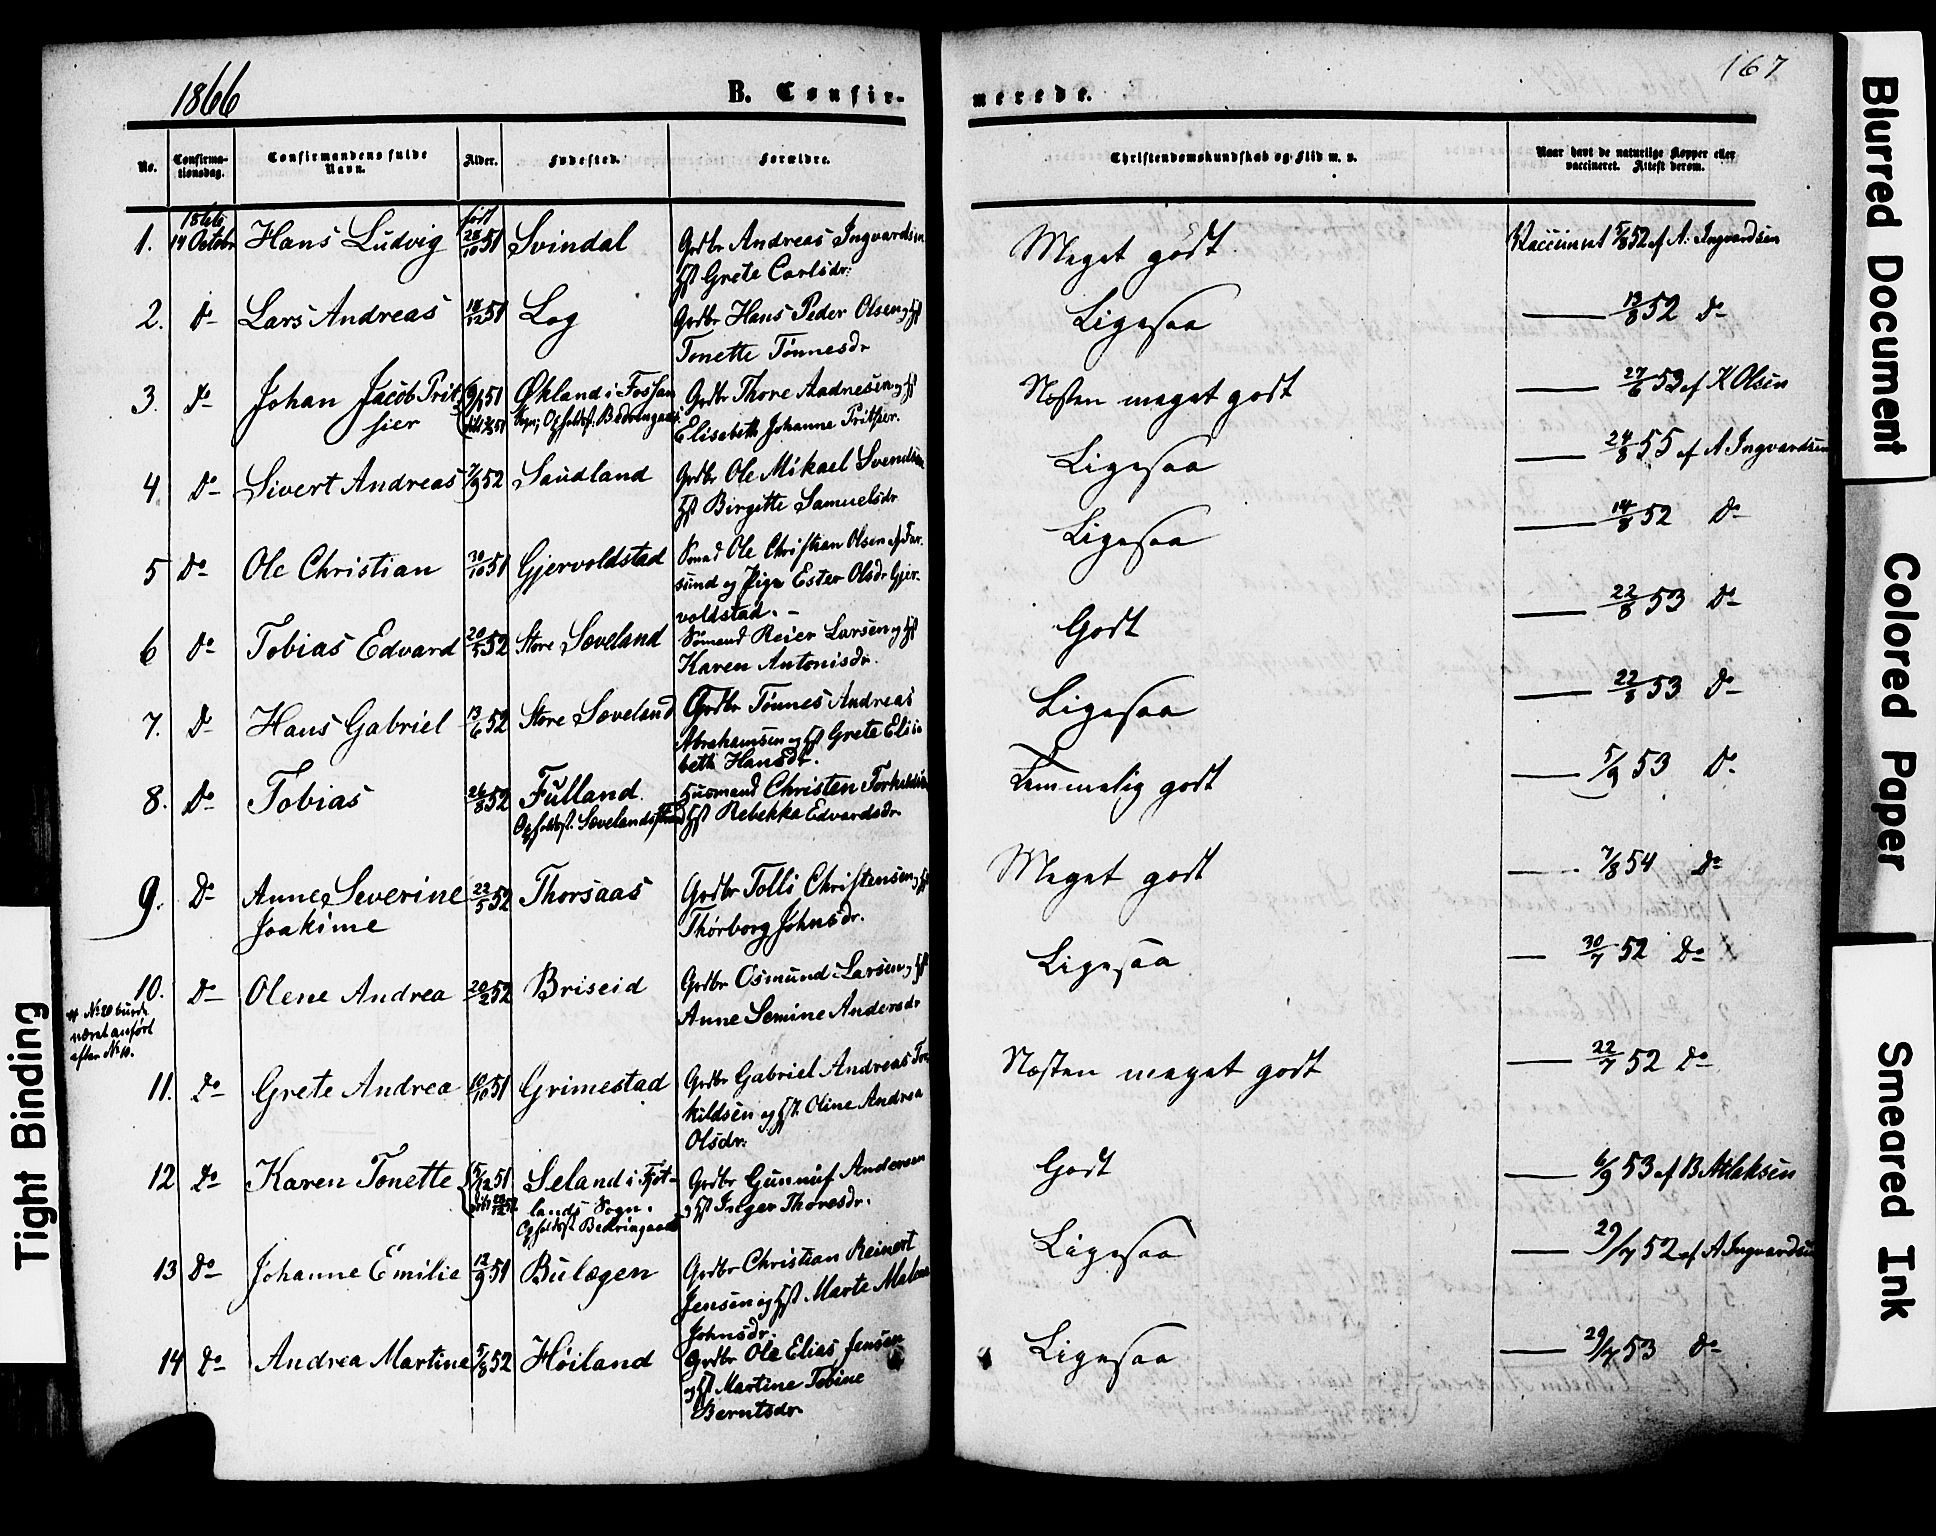 1866
B. Confir-
No.
Confirma-
tionsdag.
Confirmandens fulde
Navn.
Alder.
Fødested.
Forældre.
1.
1866
14 Octobr
Hans Ludvig
født
28/10 51
Svindal
Grdbr Andreas Ingvardsen
Hst Grete Carlsdr:
2.
Do
Lars Andreas
18/12 51
Log
Grdbr Hans Peder Olsen og Hst
Tonette Tønnesdr
3.
Do
Johan Jacob Prit-
sier
51
Økland i Fossan
Sogn; Opholdst. Bedringaas
Grdbr Thore Aadnesen og Hst
Elisabeth Johanne Pritsier.
4
Do
Sivert Andreas
7/9 52
Saudland
Grdbr Ole Mikael Svendsen
Hst Birgitte Samuelsdr
5
Do
Ole Christian
30/10 51
Gjervoldstad
Ole Christian Olsen af Far-
sund og Pige Ester Olsdr Gjer-
voldstad. –
6
Do
Tobias Edvard
20/5 52
Store Sæveland
Sømand Reier Larsen og Hst
Karen Antonisdr.
7.
Do
Hans Gabriel
13/6 52
Store Sæveland
Grdbr Tønnes Andreas
Abrahamsen og Hst Grete Elisa
beth Hansdr.
8.
Do
Tobias
26/8 52
Fulland.
Opholdst. Sævelandstrand
Huusmand Christen Torkeldsen
Hst Rebekka Edvardsdr.
9.
Do
Anne Severine
Joakime
22/5 52
Thorsaas
Grdbr Tolli Christensen og Hst
Thorborg Johnsdr.
10.
Do
Olene Andrea
20/2 52
Briseid
Grdbr Osmund Larsen og Hst
Anne Semine Andersdr
No 20 burde
været anført
efter No 10.
11.
Do
Grete Andrea
10/10 51
Grimestad
Grdbr Gabriel Andreas Tor
kildsen og Hst. Oline Andrea
Olsdr:
12
Do
Karen Tonette
5/12 51
Seland i Fjot-
lands Sogn.
Opholdst Bedringaas
Grdbr Gunnuf Andersen
og Hst Inger Thoresdr.
13
Do
Johanne Emilie
12/9 51
Bulægen
Grdbr Christian Reinert
Jensen og Hst Marte Malene
Johnsdr:
14
Do
Andrea Martine
5/8 52
Høiland
Grdbr Ole Elias Jensen
og Hst Martine Tobine
Berntsdr.
167
merede.
Christendomskundskab og Flid m. v.
Naar havt de naturlige Kopper eller
vaccineret. Attest derom.
Meget godt
Vaccineret 5/8 52 af A: Ingvardsen
Ligesaa
13/8 52 Do
Næsten meget godt
27/6 53 af K Olsen
Ligesaa
24/8 55 af A Ingvardsen
Ligesaa
14/8 52 Do
Godt
22/8 53 Do
Ligesaa
22/8 53 Do
Temmelig godt
5/9 53 Do
Meget godt
7/8 54 Do
Ligesaa
30/7 52 Do
Næsten meget godt
22/7 52 Do
Godt
6/9 53 af B Atlaksen
Ligesaa
29/7 52 af A Ingvardsen
Ligesaa
29/7 53 Do
Tight Binding
Blurred Document
Colored Paper
Smeared Ink